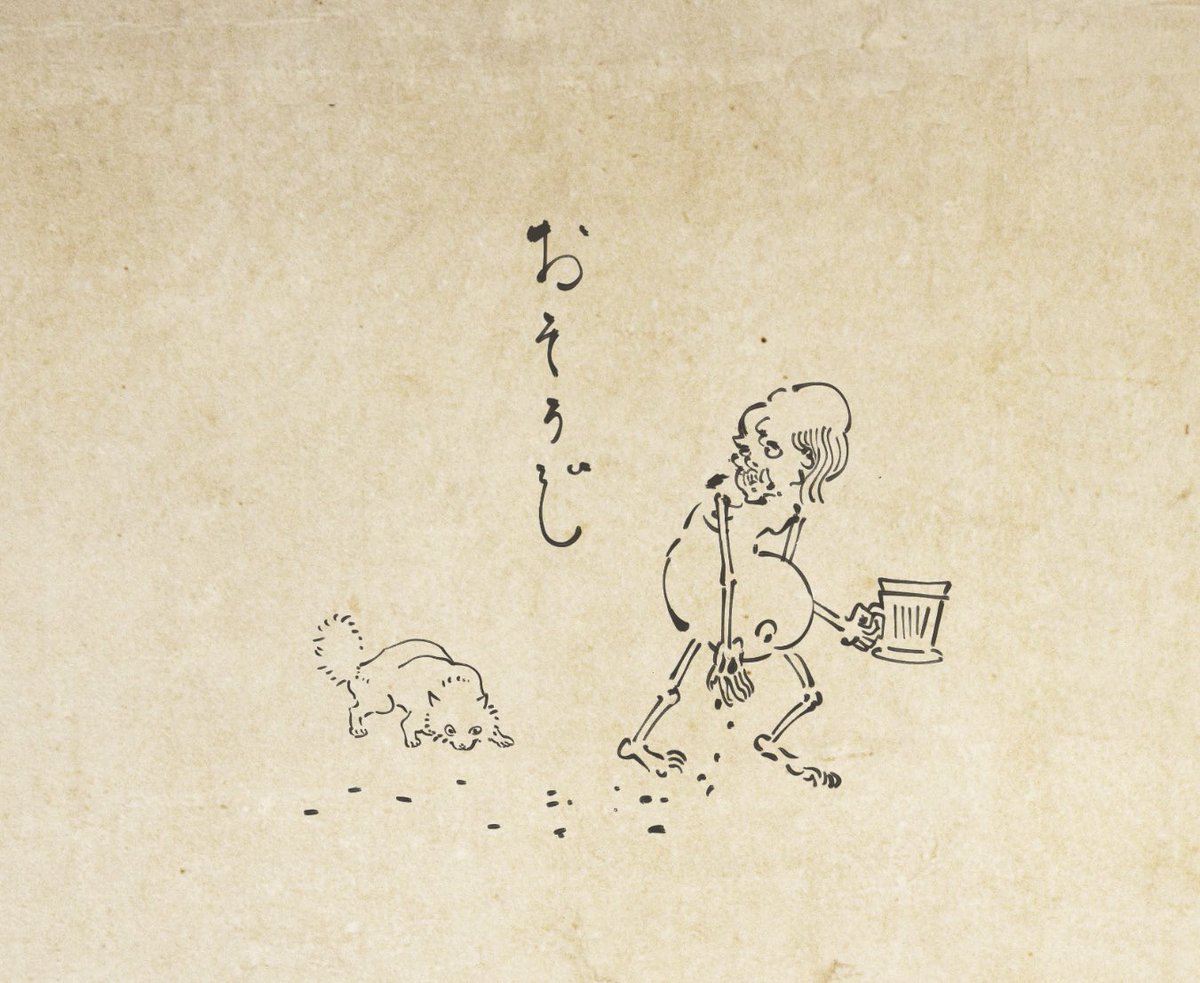 おそうじ